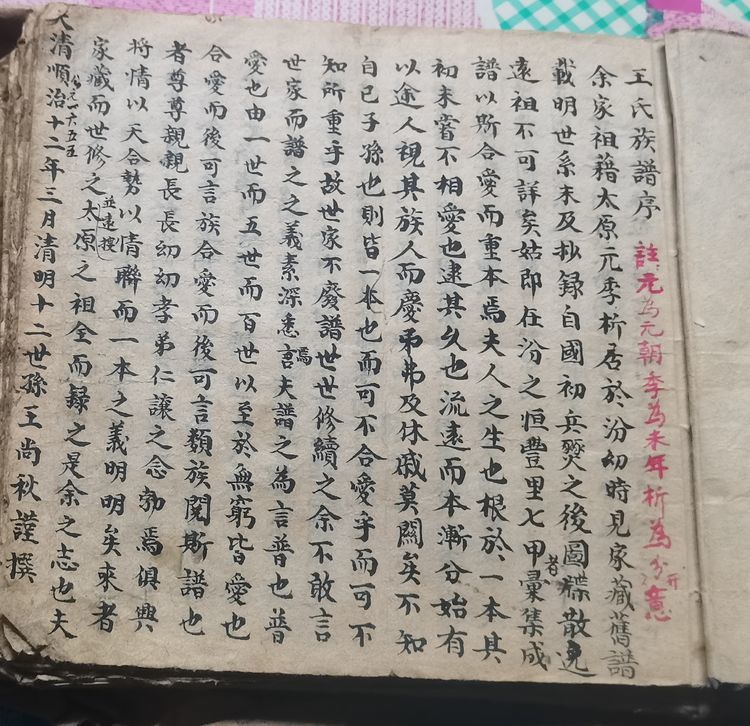 王氏族譜序
註元為元朝季為末年析為分開之意
余家祖藉太原元季析居於汾幼時見家藏舊譜
載明世系未及抄録自國初兵燹之後圖牒散逸
遠祖不可詳矣姑即在汾之恒豐里七甲者彙集成
譜以斯合愛而重本焉夫人之生也根於一本其
初未嘗不相愛也逮其久也流遠而本漸分始有
以途人視其族人而慶弔弗及休戚莫關矣不知
自己子孫也則皆一本也而可不合愛乎而可不
知所重乎故世家不廢譜世世修續之余不敢言
世家而譜之之義素深悉焉言夫譜之為言普也普
愛也由一世而五世而百世以至於無窮皆愛也
合愛而後可言族合愛而後可言類族閱斯譜也
者尊尊親親長長幼幼孝弟仁讓之念勃焉俱興
將情以天合勢以情聯而一本之義明明矣來者
家藏而世修之並遠搜太原之祖全而録之是余之志也夫
大清順治公元一六五五十二年三月清明十二世孫王尚秋謹撰